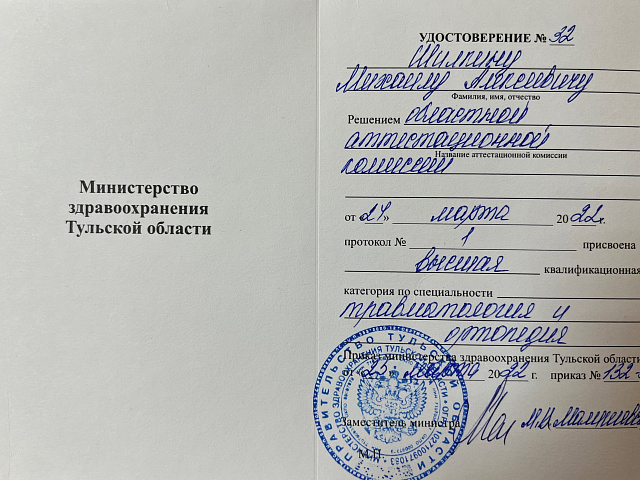 Министерство
здравоохранения
Тульской области
УДОСТОВЕРЕНИЕ № 32
Шилкину
Михаилу Алексеевичу
Фамилия, имя, отчество
Решением областной
аттестационной
Название аттестационной комиссии
комиссии
от «24» марта 2022 г.
протокол № 1 присвоена
высшая квалификационная
категория по специальности
травматология и
ортопедия
Приказ министерства здравоохранения Тульской области
от «25» марта 2022 г. приказ № 132-о
Заместитель министра
М.П.
ПРАВИТЕЛЬСТВО ТУЛЬСКОЙ ОБЛАСТИ
МИНИСТЕРСТВО ЗДРАВООХРАНЕНИЯ ТУЛЬСКОЙ ОБЛАСТИ